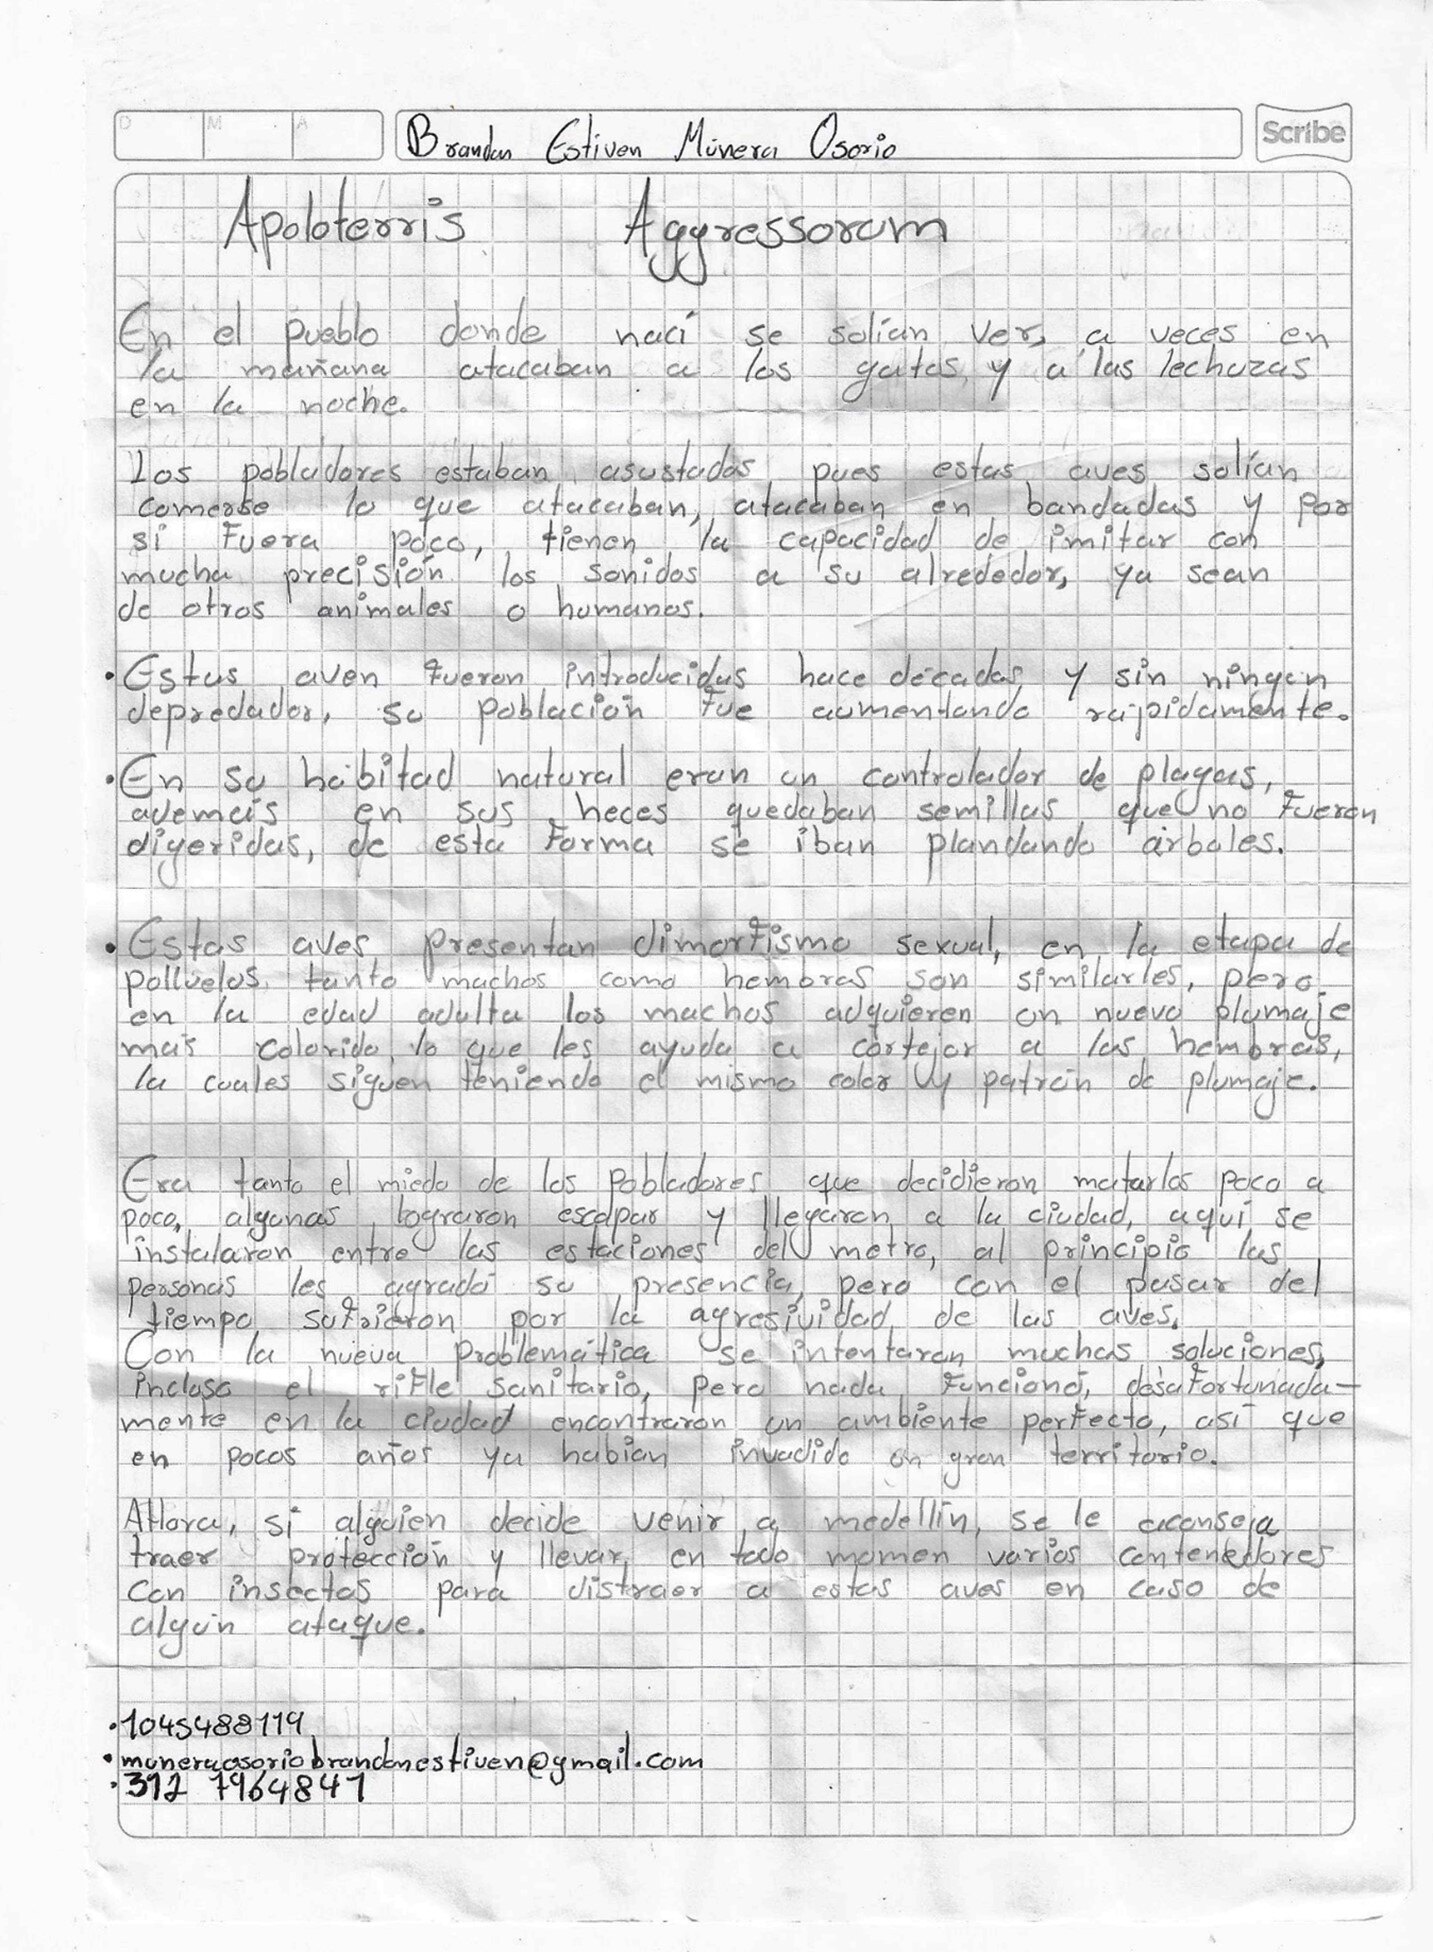 D M A Brandan Estiven Múnera Osorio Scribe
Apoloterris Aggressorum
En el pueblo donde nací se solían ver, a veces en
la mañana atacaban a los gatos, y a las lechuzas
en la noche.
Los pobladores estaban asustados pues estas aves solían
comerse lo que atacaban, atacaban en bandadas y por
si fuera poco, tienen la capacidad de imitar con
mucha precisión los sonidos a su alrededor, ya sean
de otros animales o humanos.
• Estas aven fueron introducidas hace décadas y sin ningún
depredador, su población fue aumentando rápidamente.
• En su hábitad natural eran un controlador de plagas,
además en sus heces quedaban semillas que no fueron
digeridas, de esta forma se iban plandando árboles.
• Estas aves presentan dimorfismo sexual, en la etapa de
polluelos tanto machos como hembras son similarles, pero
en la edad adulta los machos adquieren un nuevo plumaje
más colorido, lo que les ayuda a cortejar a las hembras,
la cuales siguen teniendo el mismo color y patrón de plumaje.
Era tanto el miedo de los pobladores que decidieron matarlas poco a
poco, algunas lograron escapar y llegaron a la ciudad, aquí se
instalaron entre las estaciones del metro, al principio las
personas les agradó su presencia, pero con el pasar del
tiempo sufrieron por la agresividad de las aves.
Con la nueva problemática se intentaron muchas soluciones,
incluso el rifle sanitario, pero nada funcionó, desafortunada-
mente en la ciudad encontraron un ambiente perfecto, así que
en pocos años ya habían invadido un gran territorio.
AHora, si alguien decide venir a medellín, se le aconseja
traer protección y llevar en todo momen varios contenedores
con insectos para distraer a estas aves en caso de
algún ataque.
• 1045488119
• muneraosoriobrandanestiven@gmail.com
• 312 7964841